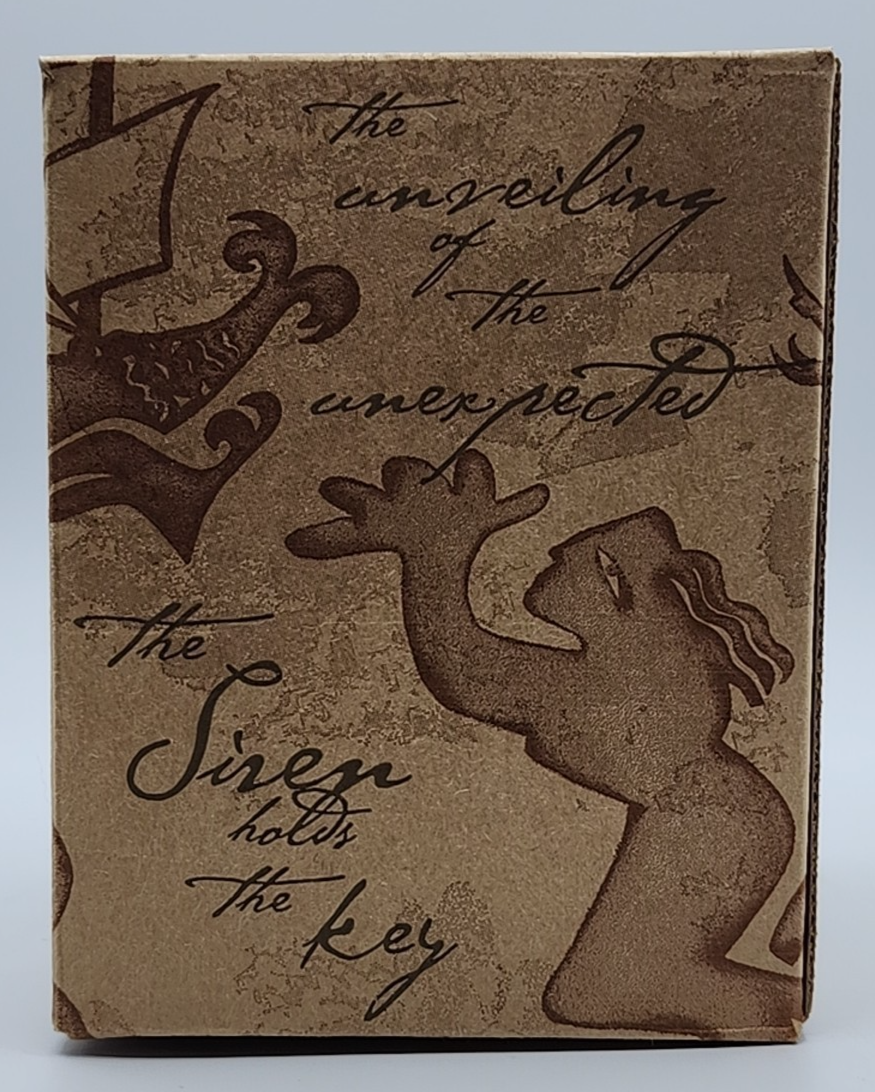 the
unveiling
of
the
unexpected
the
Siren
holds
the
key